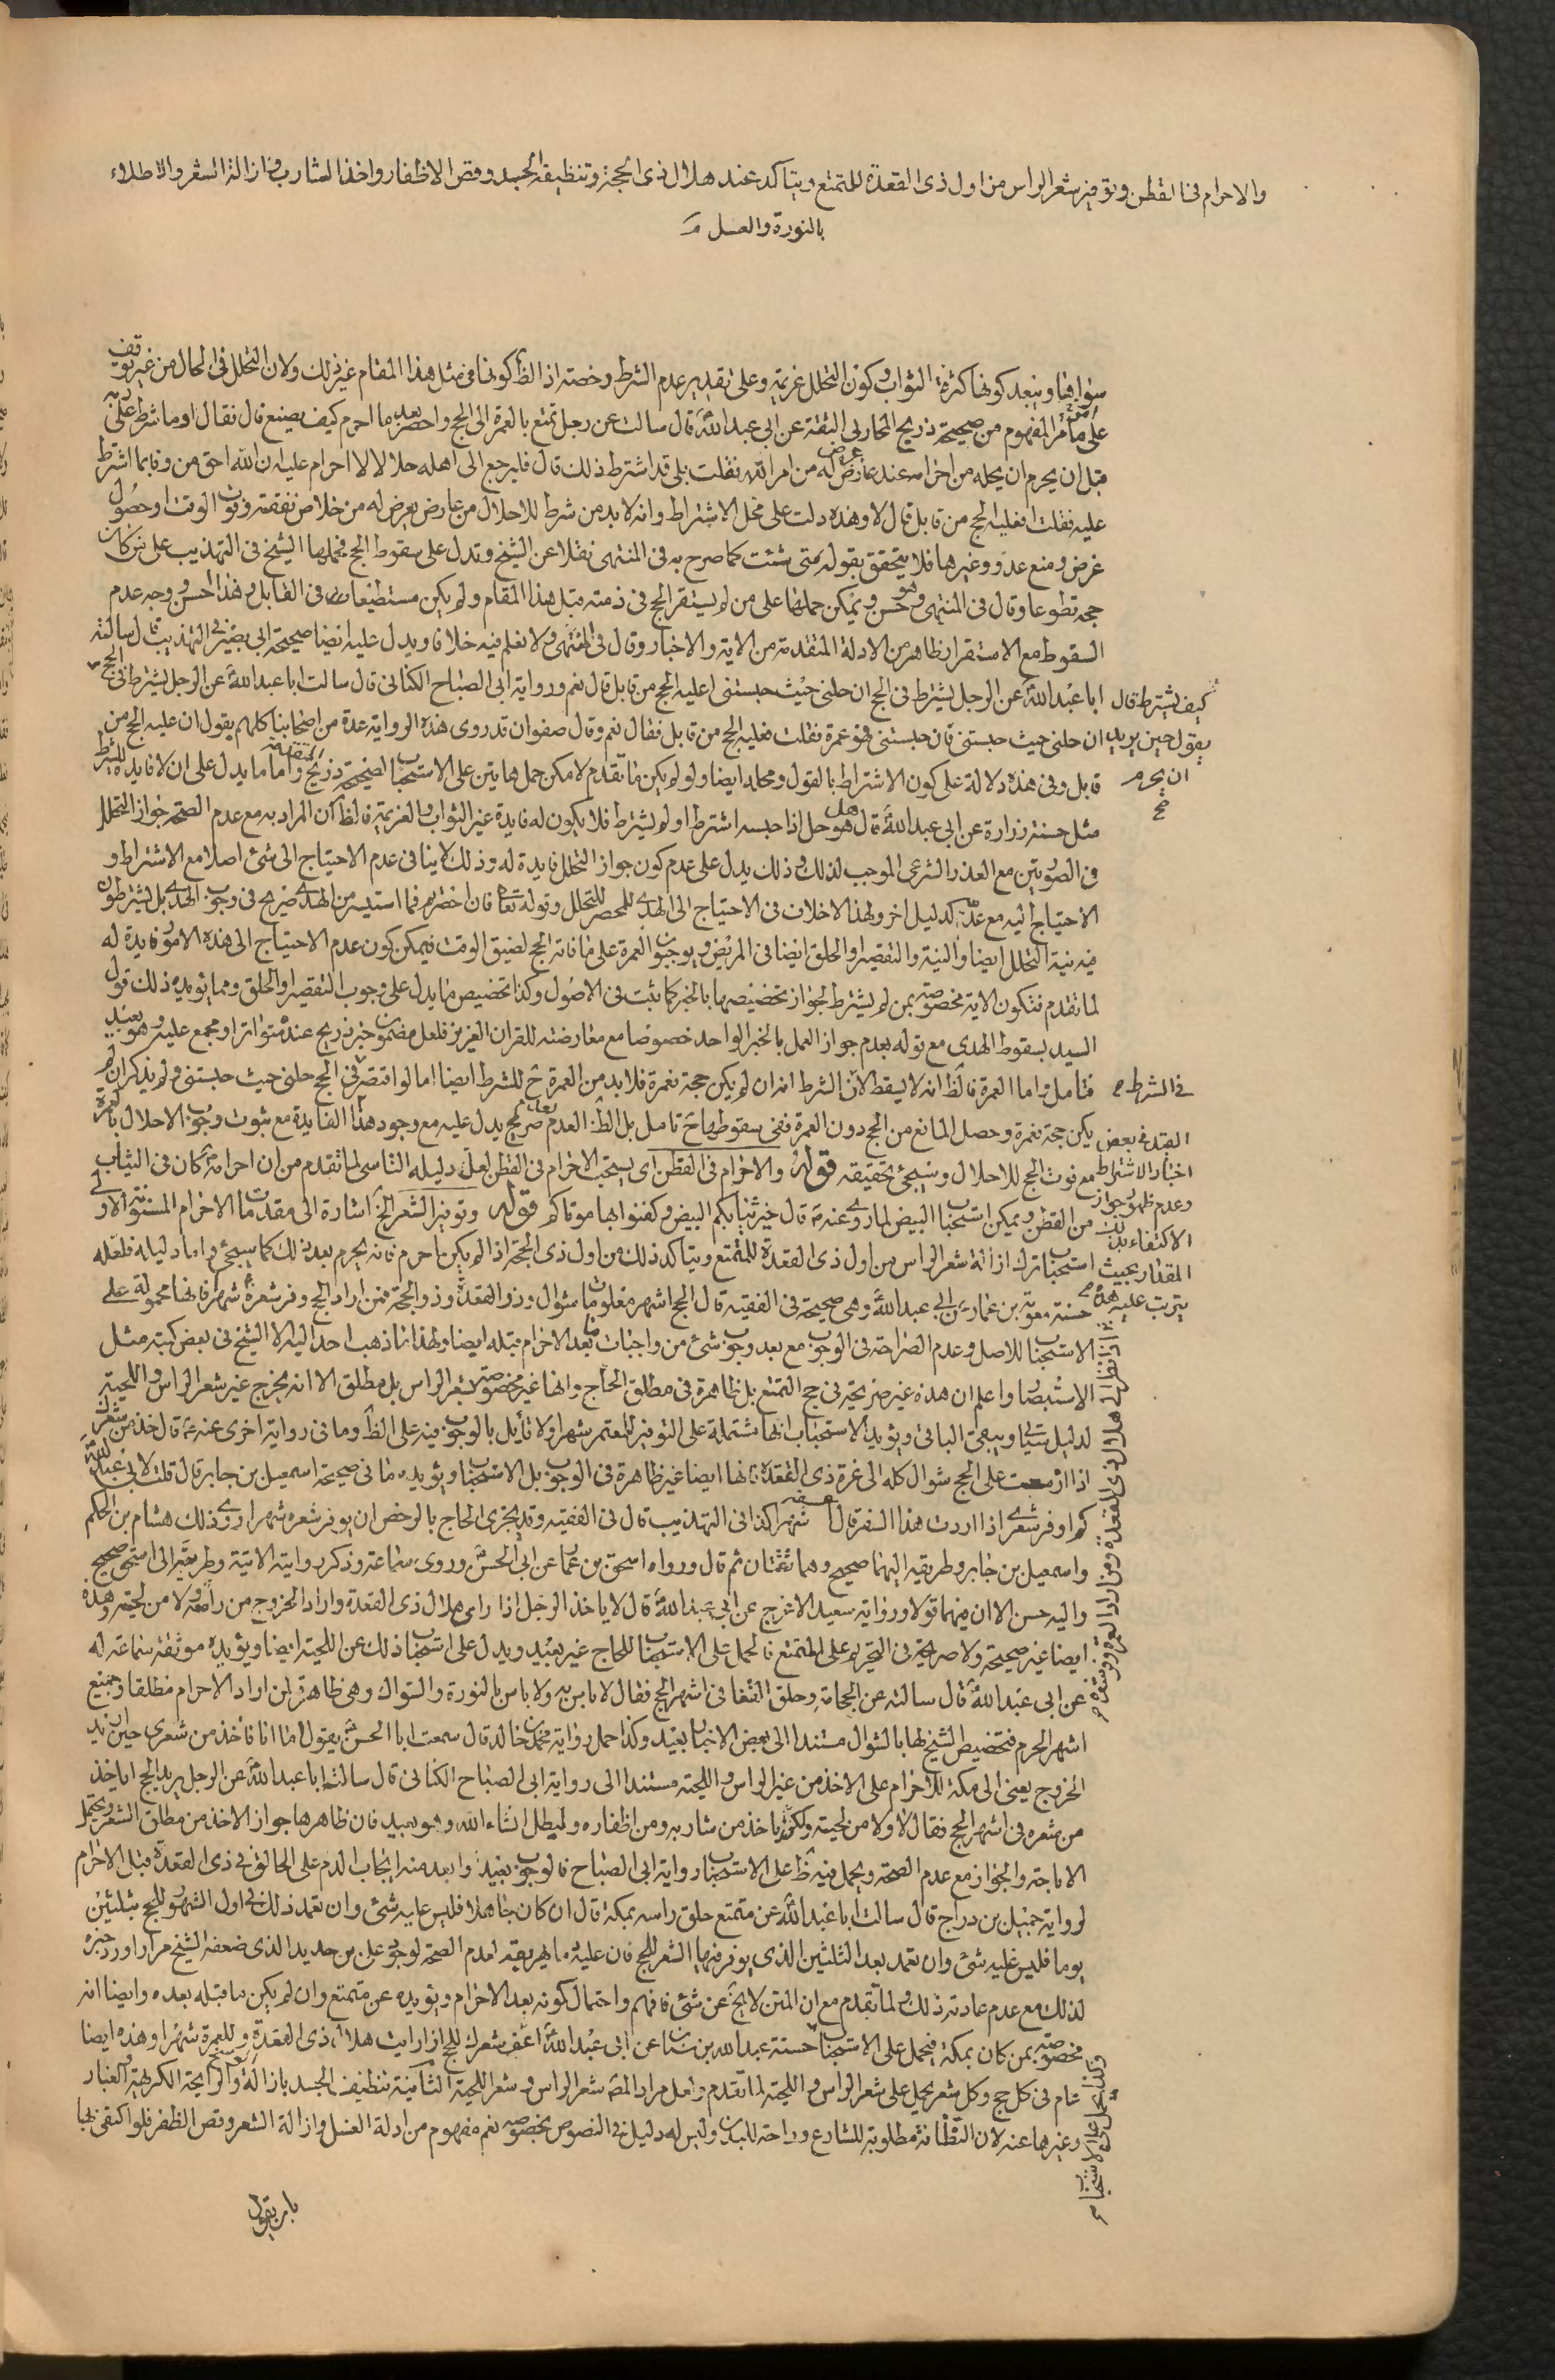 والاحرام في القطن وتوفير شعر الراس من اول ذي القعدة للمتمتع ويتاكد عند هلال ذي الحجة وتنظيف الجسد وقص الاظفار واخذ الشارب وازالة الشعر والاطلاء
بالنورة والغسل
سؤالها ويبعد كونها كثرة الثواب وكون التحلل عزيمة وعلى تقدير عدم الشرط رخصة اذ الظ كونها في مثل هذا المقام غير ذلك ولان التحلل في الحال من غير توقف
على ما مر المفهوم من صحيحة ذريح المحاربي الثقة عن ابي عبد الله قال سالت عن رجل تمتع بالعمرة الى الحج واحصر بعد ما احرم كيف يصنع قال فقال اوما شرط على ربه
قبل ان يحرم ان يحله من احرامه عند عارض عرض له من امر الله فقلت بلى قد اشترط ذلك قال فليرجع الى اهله حلالا لا احرام عليه ان الله احق من وفا بما اشترط
عليه فقلت افعليه الحج من قابل قال لا وهذه دلت على محل الاشتراط وانه لا بد من شرط للاحلال من عارض يعرض له من خلاص نفقته وفوت الوقت او حصول
غرض ومنع عدو وغيرها فلا يتحقق بقوله متى شئت كما صرح به في المنتهى نقلا عن الشيخ وتدل على سقوط الحج فحملها الشيخ في التهذيب على من كان
حجه تطوعا وقال في المنتهى وهو حسن ويمكن حملها على من لم يستقر الحج في ذمته قبل هذا المقام ولم يكن مستطيعا في القابل وهذا احسن وجه عدم
السقوط مع الاستقرار ظاهر من الادلة المتقدمة من الاية والاخبار وقال في المنتهى ولا نعلم فيه خلافا ويدل عليه ايضا صحيحة ابي بصير في التهذيب قال سالته
ابا عبد الله عن الرجل يشترط في الحج ان حلني حيث حبستني اعليه الحج من قابل قال نعم ورواية ابي الصباح الكناني قال سالت ابا عبد الله عن الرجل يشترط في الحج
كيف يشترط قال
يقول حين يريد
ان يحرم
ان حلني حيث حبستني فان حبستني فهو عمرة فقلت فعليه الحج من قابل فقال نعم وقال صفوان قد روى هذه الرواية عدة من اصحابنا كلهم يقول ان عليه الحج من
قابل وفي هذه دلالة على كون الاشتراط بالقول ومحله ايضا ولو لم يكن ما تقدم لامكن حمل هاتين على الاستحباب لصحيحة ذريح واما ما يدل على ان لا فايدة للشرط
مثل حسنة زرارة عن ابي عبد الله قال هو حل اذا حبسه اشترط او لم يشترط فلا يكون له فايدة غير الثواب والعزيمة فالظ ان المراد به مع عدم الصحة جواز التحلل
في الصورتين مع العذر الشرعي الموجب لذلك وذلك يدل على عدم كون جواز التحلل فايدة له وذلك لا ينافي عدم الاحتياج الى شئ اصلا مع الاشتراط و
الاحتياج اليه مع عدمه كدليل اخر ولهذا الاخلاف في الاحتياج الى الهدي للمحصر للتحلل وقوله تعا فان احصرتم فما استيسر من الهدي صريح في وجوب الهدي بل يشترطون
فيه نية التحلل ايضا والنية والتقصير او الحلق ايضا في المريض ويوجبون العمرة على ما فاته الحج لضيق الوقت فيمكن كون عدم الاحتياج الى هذه الامور فايدة له
لما تقدم فتكون الاية مخصوصة بمن لم يشترط لجواز تخصيصها بالخبر كما يثبت في الاصول وكذا تخصيص ما يدل على وجوب التقصير او الحلق ومما يؤيد ذلك قول
السيد بسقوط الهدي مع قوله بعدم جواز العمل بالخبر الواحد خصوصا مع معارضته للقران العزيز فلعل مضمون خبر ذريح عنده متواترا ومجمع عليه وهو بعيد
فتامل واما العمرة فالظ انه لا يسقط لان الشرط انه ان لم يكن حجة فعمرة فلا بد من العمرة ح للشرط ايضا اما لو اقتصر في الحج حلني حيث حبستني ولم يذكر ان لم
في الشرط
يكن حجة فعمرة وحصل المانع من الحج دون العمرة ففي سقوطها ح تامل بل الظ العدم صريح يدل عليه مع وجود هذا الفايدة مع ثبوت وجوب الاحلال بالعمرة
القيد في بعض
اخبار الاشتراط
وعدم ظهور جواز
الاكتفاء بذلك
المقدار بحيث
يترتب عليه
مع فوت الحج للاحلال وسيجئ تحقيقه قوله والاحرام في القطن اي يستحب الاحرام في القطن لعل دليله التاسي لما تقدم من ان احرامه كان في الثياب
من القطن ويمكن استحباب البيض لما روى عنه قال خير ثيابكم البيض وكفنوا بها موتاكم قوله وتوفير الشعر الخ اشارة الى مقدمات الاحرام المسنونة الاولى
استحباب ترك ازالة شعر الراس من اول ذي القعدة للمتمتع ويتاكد ذلك من اول ذي الحجة اذا لم يكن احرم فانه يحرم بعد ذلك كما سيجئ واما دليله فلعله
حسنة معوية بن عمار عن ابي عبد الله وهي صحيحة في الفقيه قال الحج اشهر معلومات شوال وذو القعدة وذو الحجة فمن اراد الحج وفر شعره شهر فانها محمولة على
الاستحباب للاصل وعدم الصراحة في الوجوب مع بعد وجوب شئ من واجبات ما بعد الاحرام قبله ايضا ولهذا ما ذهب احد اليه الا الشيخ في بعض كتبه مثل
الاستبصار واعلم ان هذه غير صريحة في حج التمتع بل ظاهرة في مطلق الحاج وانها غير مخصوصة بشعر الراس بل مطلق الا انه يخرج غير شعر الراس واللحية
لدليل سياتي ويبقى الباقي ويؤيد الاستحباب انها مشتملة على التوفير للمعتمر شهرا ولا قايل بالوجوب فيه على الظ وما في رواية اخرى عنه قال خذ من شعرك
اذا ازمعت على الحج شوال كله الى غرة ذي القعدة فانها ايضا غير ظاهرة في الوجوب بل الاستحباب ويؤيده ما في صحيحة اسمعيل بن جابر قال قلت لابي عبد الله
كم اوفر شعري اذا اردت هذا السفر قال شهرا كذا في التهذيب قال في الفقيه وقد يجزي الحاج بالرخص ان يوفر شعره شهرا روى ذلك هشام بن الحكم
واسمعيل بن جابر وطريقيه اليهما صحيح وهما ثقتان ثم قال ورواه اسحق بن عمار عن ابي الحسن وروى سماعة وذكر رواية الاتية وطريقه الى اسحق صحيح
واليه حسن الا ان فيهما قولا ورواية سعيد الاعرج عن ابي عبد الله قال لا ياخذ الرجل اذا راى هلال ذي القعدة واراد الخروج من راسه ولا من لحيته وهذه
ايضا غير صحيحة ولا صريحة في التحريم على المتمتع فالحمل على الاستحباب للحاج غير بعيد ويدل على استحباب ذلك عن اللحية ايضا ويؤيده موثقة سماعة له
عن ابي عبد الله قال سالته عن الحجامة وحلق القفا في اشهر الحج فقال لا باس به ولا باس بالنورة والسواك وهي ظاهرة لمن اراد الاحرام مطلقا وجميع
اشهر الحرم فتخصيص الشيخ لها بالشوال مستندا الى بعض الاخبار بعيد وكذا حمل رواية محمد بن خالد قال سمعت ابا الحسن يقول اما انا فاخذ من شعري حين اريد
الخروج يعني الى مكة للاحرام على الاخذ من غير الراس واللحية مستندا الى رواية ابي الصباح الكناني قال سالت ابا عبد الله عن الرجل يريد الحج اياخذ
من شعره في اشهر الحج فقال لا ولا من لحيته ولكن ياخذ من شاربه ومن اظفاره وليطل انشاء الله وهو بعيد فان ظاهرها جواز الاخذ من مطلق الشعر ويحتمل
الاباحة والجواز مع عدم الصحة ويحمل فيه ظ على الاستحباب رواية ابي الصباح فالوجوب بعيد وابعد منه ايجاب الدم على الحالق في ذي القعدة قبل الاحرام
لرواية جميل بن دراج قال سالت ابا عبد الله عن متمتع حلق راسه بمكة قال ان كان جاهلا فليس عليه شئ وان تعمد ذلك في اول الشهور للحج بثلثين
يوما فليس عليه شئ وان تعمد بعد الثلثين الذي يوفر فيها الشعر للحج فان عليه دما يهريقه لعدم الصحة لوجود علي بن حديد الذي ضعفه الشيخ مرارا ورد خبره
لذلك مع عدم عادته ذلك ولما تقدم مع ان المتن لا يخ عن شئ فافهم واحتمال كونه بعد الاحرام ويؤيده عن متمتع وان لم يكن ما قبله بعده وايضا انه
مخصوصة بمن كان بمكة فيحمل على الاستحباب حسنة عبد الله بن سنان عن ابي عبد الله اعف شعرك للحج اذا رايت هلال ذي القعدة وللعمرة شهرا وهذه ايضا
عام في كل حج وكل شعر يحمل على شعر الراس واللحية لما تقدم ولعل مراد المص شعر الراس وشعر اللحية الثانية تنظيف الجسد بازالة الوسخ والرايحة الكريهة والغبار
وغيرها عنه لان النظافة مطلوبة للشارع وراحة للبدن وليس له دليل في النصوص بخصوصه نعم مفهوم من ادلة الغسل وازالة الشعر وقص الظفر فلو اكتفى بها
بان يقول